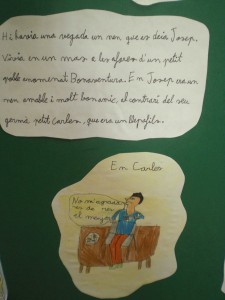 Hi havia una vegada un nen que es deia Josep.
Vivia en un mas a les afores d'un petit
poble anomenat Bonaventura. En Josep era un
nen amable i molt bonamic, al contrari del seu
germà petit Carles, que era un llepafils.
En Carles
No m'agrada
res de res